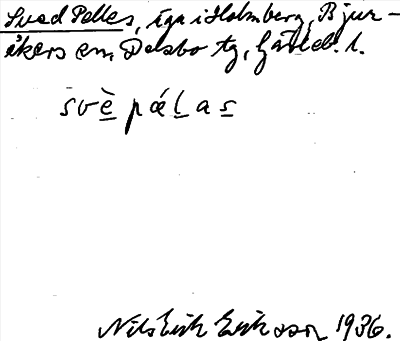 Sved Pelles, äga i Holmberg, Bjur-
åkers sn, Delsbo tg, Gävleb. l.
svè pálas
Nils Erik Eriksson 1936.